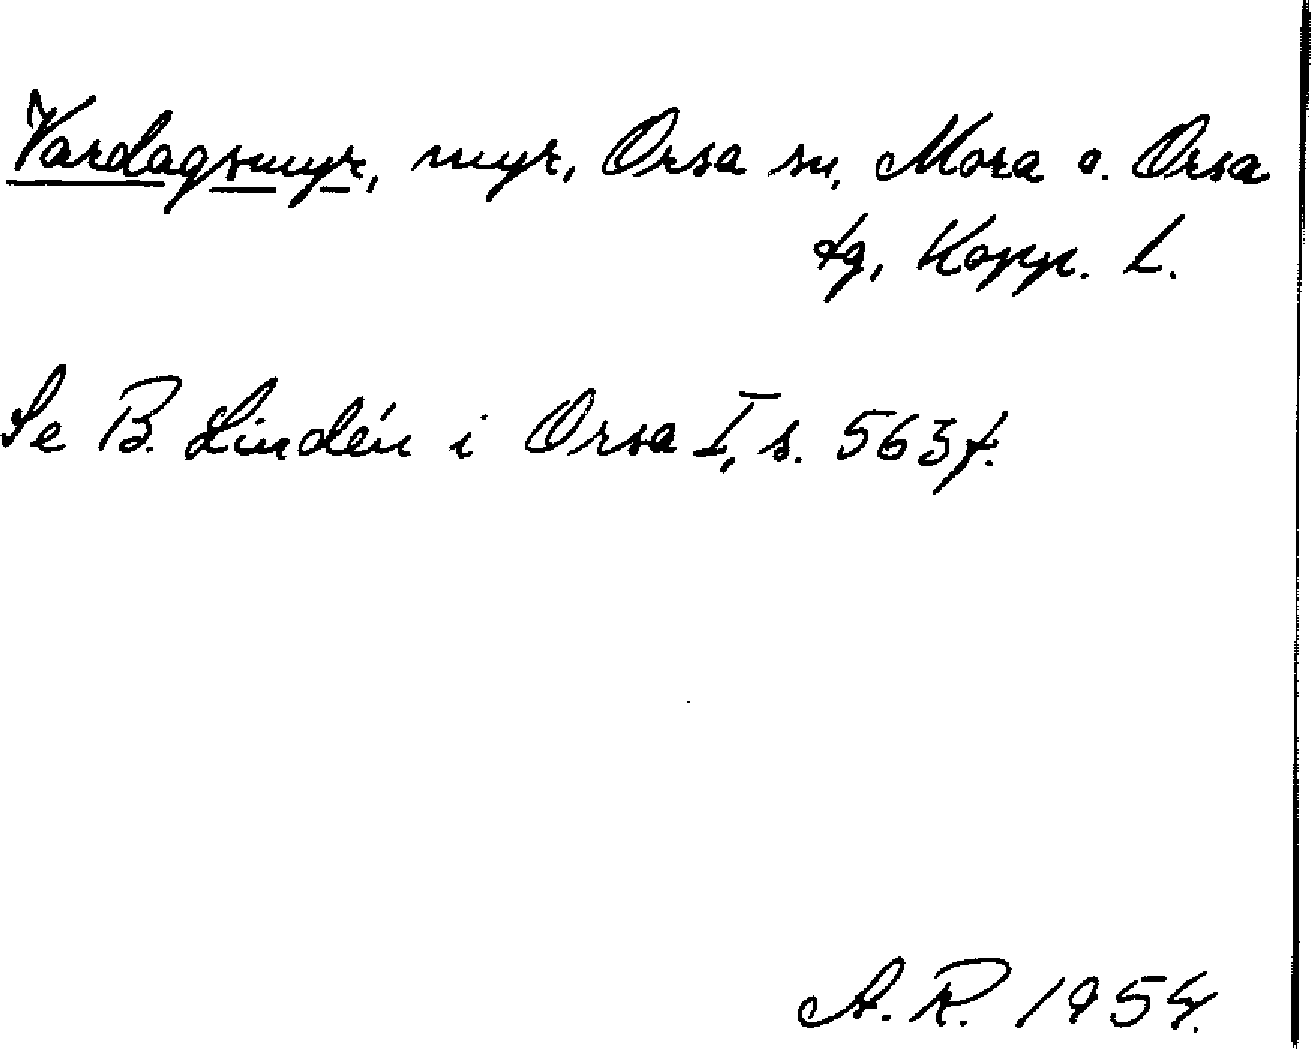 Vardagsmyr, myr, Orsa sn, Mora o. Orsa
tg, Kopp. L.
Se B. Lindén i Orsa I, s. 563f.
A. R. 1954.